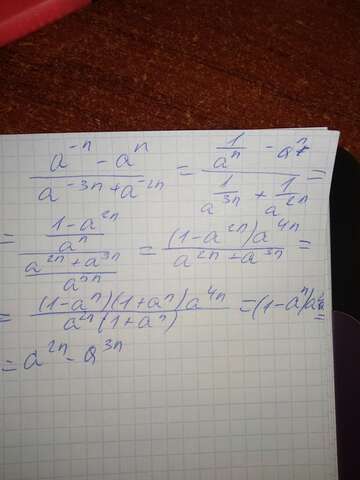 (a^{-n} - a^n)/(a^{-3n} + a^{-2n}) = (1/a^n - a^n)/(1/a^{3n} + 1/a^{2n}) =
= ((1-a^{2n})/a^n)/((a^{2n} + a^{3n})/a^{5n}) = ((1-a^{2n})a^{4n})/(a^{2n} + a^{3n}) =
= ((1-a^n)(1+a^n)a^{4n})/(a^{2n}(1+a^n)) = (1-a^n)a^{2n} =
= a^{2n} - a^{3n}